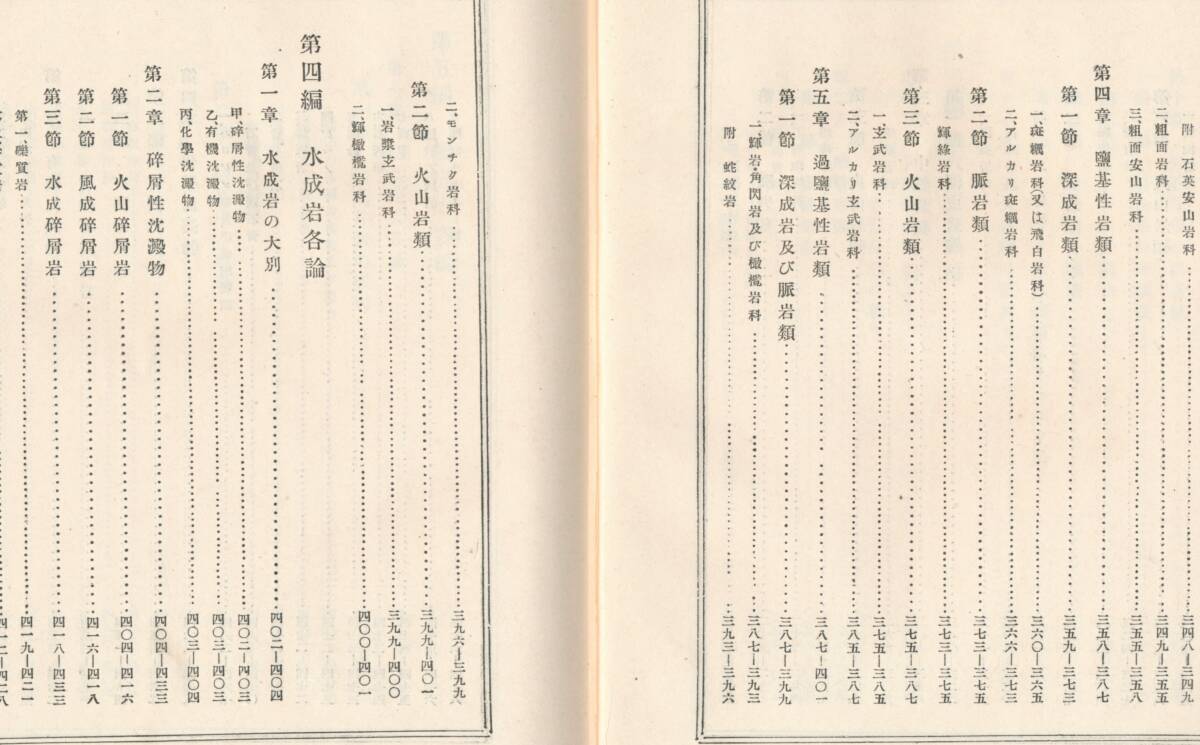 附 石英安山岩科…三四八―三四九
二、粗面岩科…三四九―三五五
三、粗面安山岩科…三五五―三五八
第四章 鹽基性岩類…三五八―三八七
第一節 深成岩類…三五九―三七三
一、斑糲岩科(又は飛白岩科)…三六〇―三六五
二、アルカリ斑糲岩科…三六六―三七三
第二節 脈岩類…三七三―三七五
輝綠岩科…三七三―三七五
第三節 火山岩類…三七五―三八七
一、玄武岩科…三七五―三八五
二、アルカリ玄武岩科…三八五―三八七
第五章 過鹽基性岩類…三八七―四〇一
第一節 深成岩及び脈岩類…三八七―三九九
一、輝岩・角閃岩及び橄欖岩科…三八七―三九三
附 蛇紋岩…三九三―三九六
二、モンチク岩科…三九六―三九九
第二節 火山岩類…三九九―四〇一
一、岩漿玄武岩科…三九九―四〇〇
二、輝橄欖岩科…四〇〇―四〇一
第四編 水成岩各論
第一章 水成岩の大別…四〇二―四〇四
甲、碎屑性沈澱物…四〇二―四〇三
乙、有機沈澱物…四〇三―四〇三
丙、化學沈澱物…四〇三―四〇四
第二章 碎屑性沈澱物…四〇四―四三三
第一節 火山碎屑岩…四〇四―四一六
第二節 風成碎屑岩…四一六―四一八
第三節 水成碎屑岩…四一八―四三三
第一礫質岩…四一九―四二一